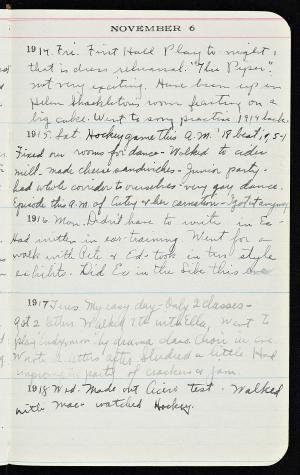 NOVEMBER 6
1914. Fri. First Hall Play to night,
that is dress rehearsal. "The Piper".
not very exciting. Have been up in
Helen Shackleton's room feasting on a
big cake. Went to song practise, 1914 back.
1915. Sat. Hockey game this A.M. '18 beat, 5-1
Fixed our rooms for dance - Walked to cider
mill - made cheese sandwiches - Junior party -
had whole corridor to ourselves - very gay dance.
Episode this A.M. of & her carnation -
1916 Mon. Didn't have to write in Ec -
Had written in ear-training. Went for a
walk with Pete & Ed - took in style
exhibits. Did Ec in the Libe this
1917 Tues. My easy day - Only 2 classes -
Got 2 letters Walked with Ella, Went to
play by drama class. Choir in eve.
Wrote 2 letters after. Studied a little Had
party of crackers & jam.
1918 Wed. Made out Civics test - Walked
with Mac - watched Hockey.